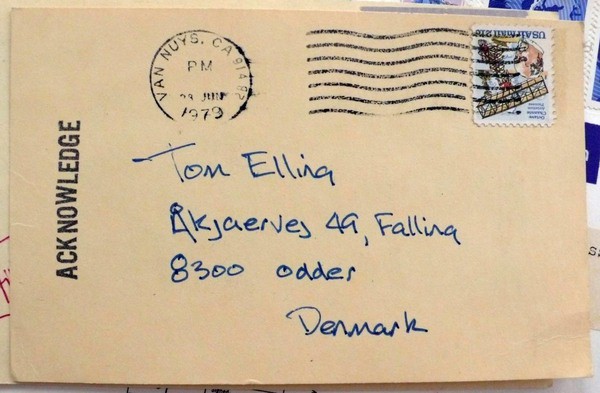 VAN NUYS, CA 914
PM
JUN
1979
USAirmail 21c
ACKNOWLEDGE
Tom Elling
Åkjaervej 49, Falling
8300 odder
Denmark